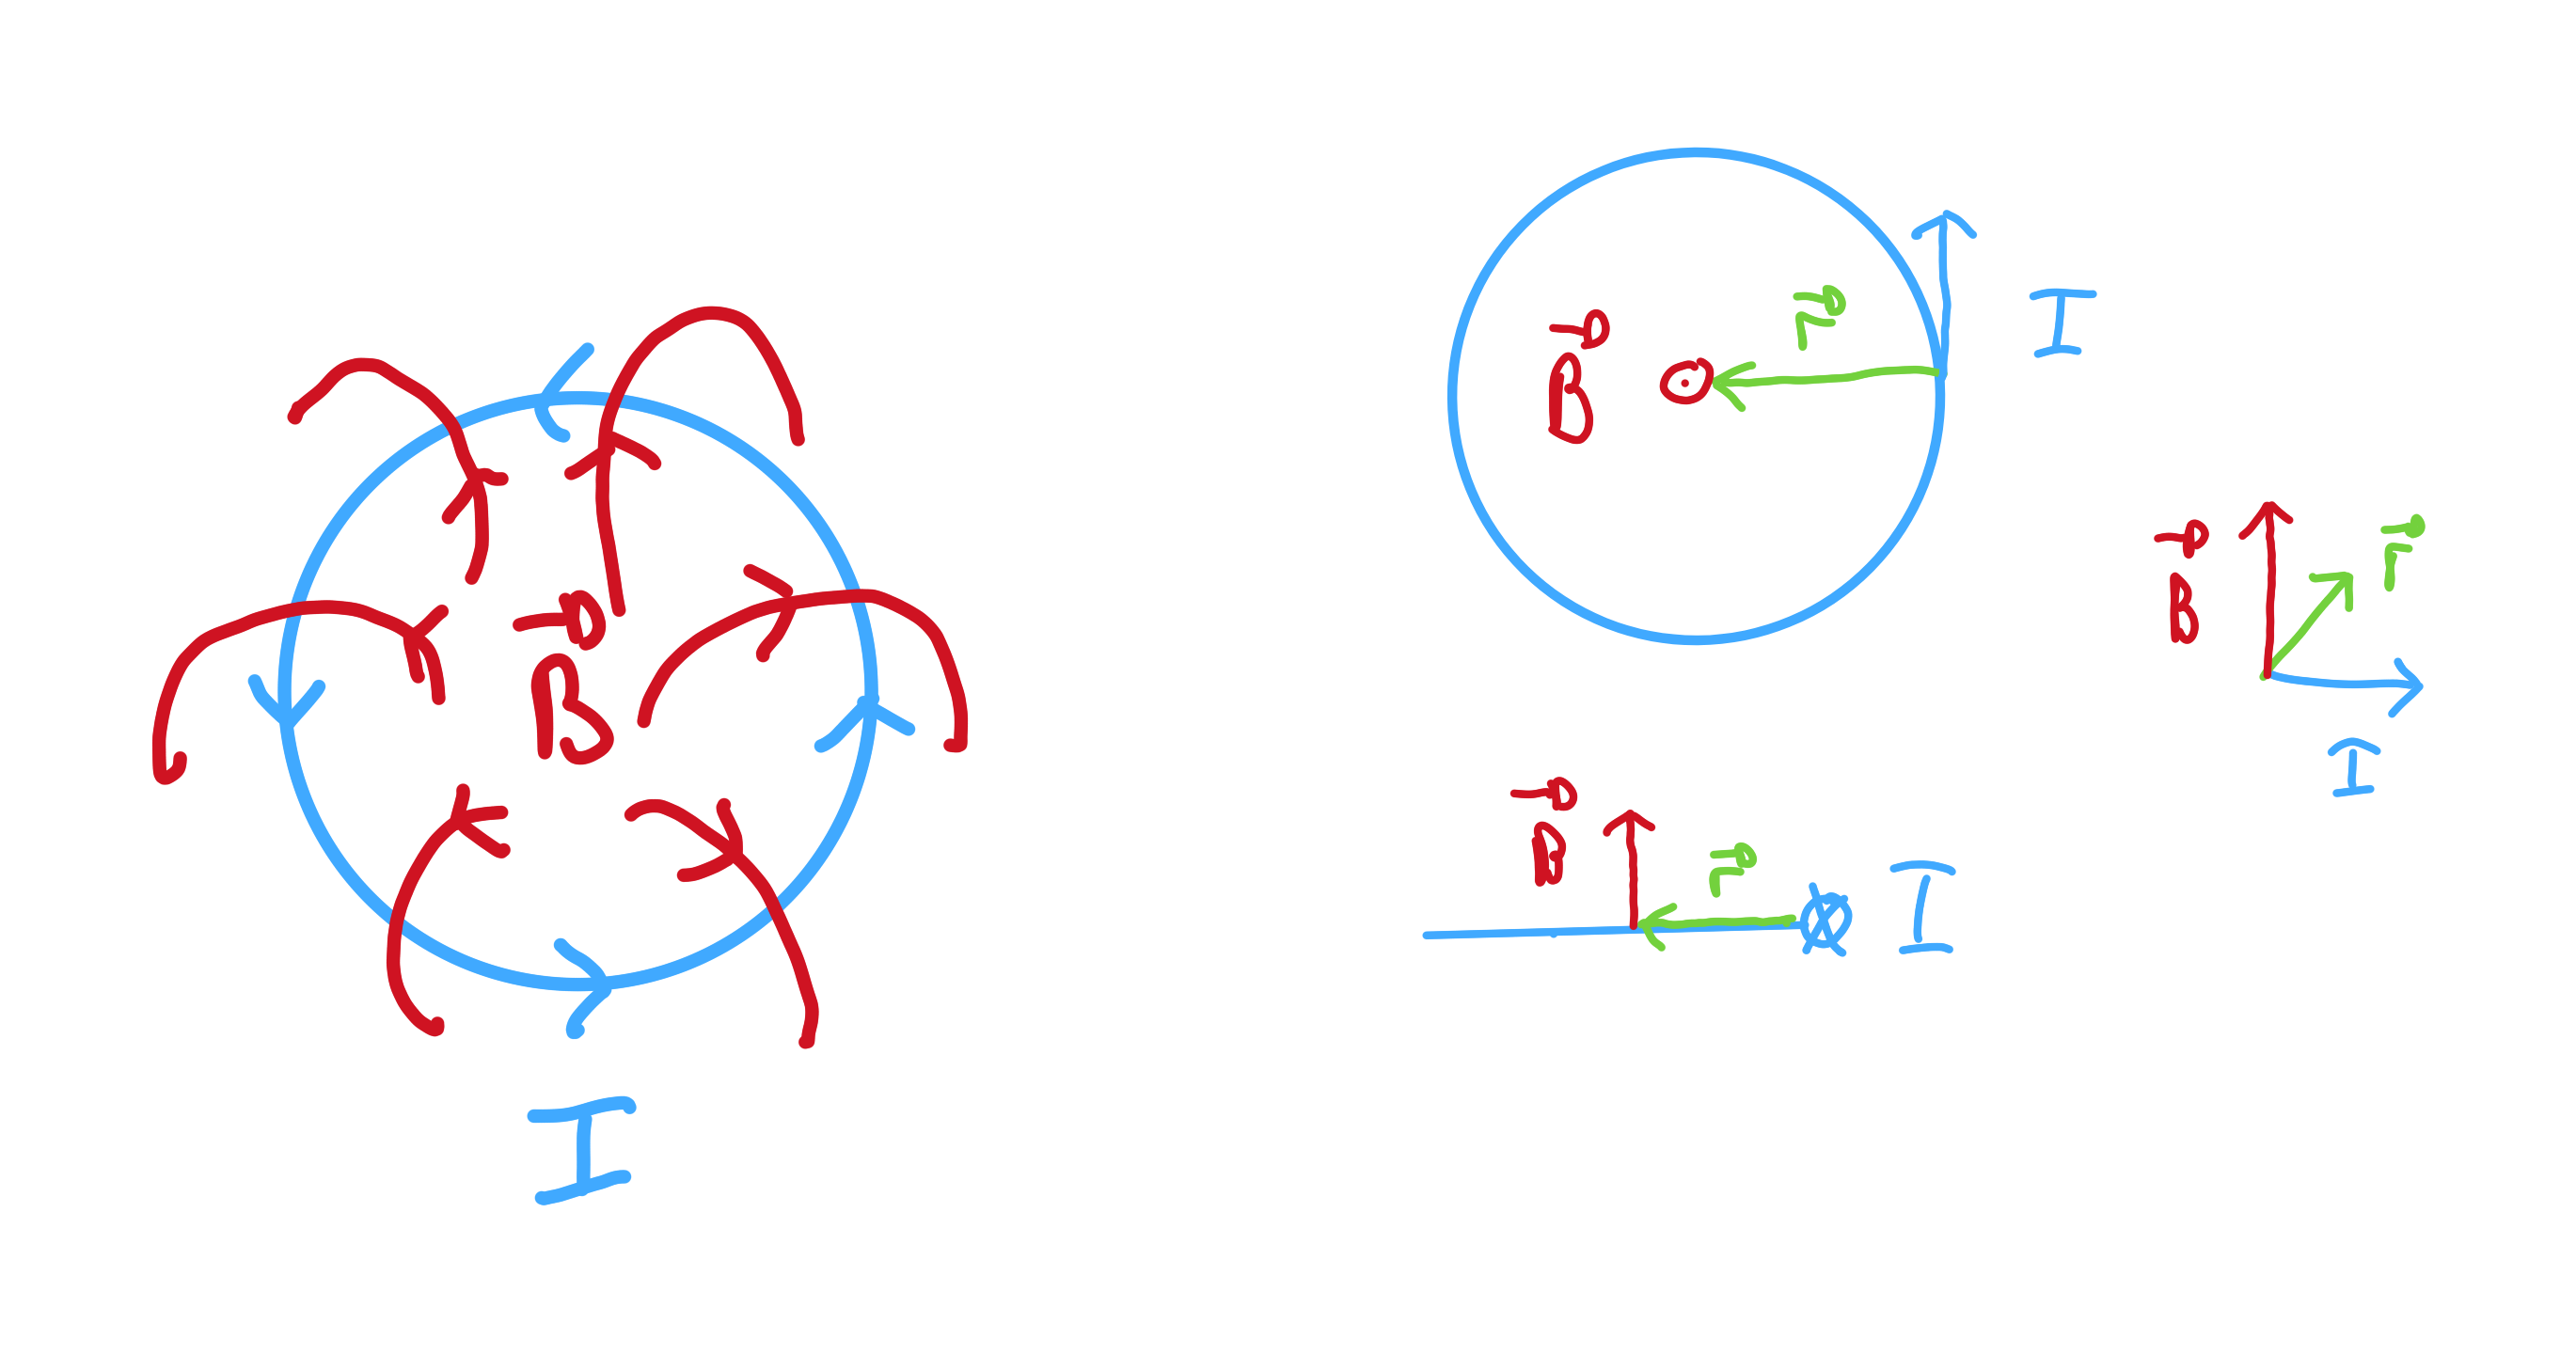 B⃗
I
B⃗
r⃗
I
B⃗
r⃗
I
B⃗
r⃗
I